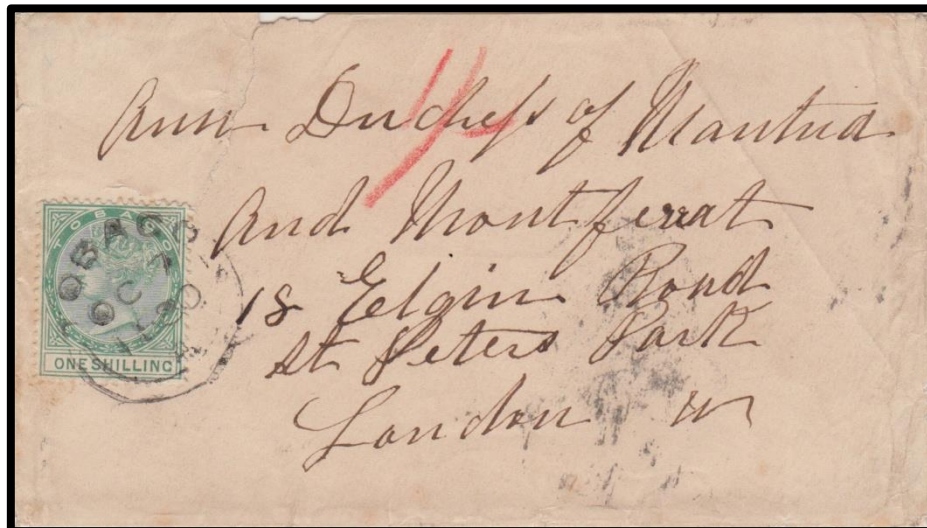 1/-
Ann Duchess of Mantua
And Montferrat
18 Elgin Road
St Peters Park
London W
TOBAGO
ONE SHILLING
TOBAGO
OC
80